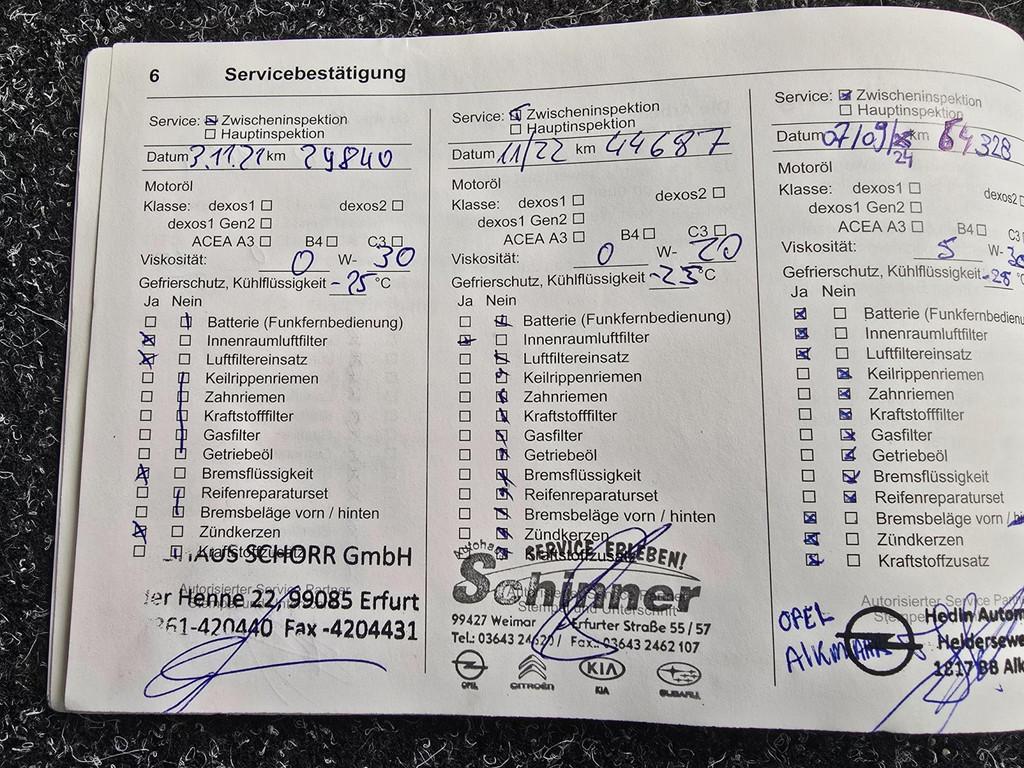 6 Servicebestätigung
Service: ☒ Zwischeninspektion
☐ Hauptinspektion
Datum 3.11.21 km 29840
Motoröl
Klasse: dexos1 ☐ dexos2 ☐
dexos1 Gen2 ☐
ACEA A3 ☐ B4 ☐ C3 ☐
Viskosität: 0 W- 30
Gefrierschutz, Kühlflüssigkeit -25 °C
Ja Nein
Batterie (Funkfernbedienung)
Innenraumluftfilter
Luftfiltereinsatz
Keilrippenriemen
Zahnriemen
Kraftstofffilter
Gasfilter
Getriebeöl
Bremsflüssigkeit
Reifenreparaturset
Bremsbeläge vorn / hinten
Zündkerzen
Kraftstoffzusatz
HAUS SCHORR GmbH
Autorisierter Service Partner
Henne 22, 99085 Erfurt
361-420440 Fax -4204431
Service: ☒ Zwischeninspektion
☐ Hauptinspektion
Datum 11/22 km 44687
Motoröl
Klasse: dexos1 ☐ dexos2 ☐
dexos1 Gen2 ☐
ACEA A3 ☐ B4 ☐ C3 ☐
Viskosität: 0 W- 20
Gefrierschutz, Kühlflüssigkeit -25 °C
Ja Nein
Batterie (Funkfernbedienung)
Innenraumluftfilter
Luftfiltereinsatz
Keilrippenriemen
Zahnriemen
Kraftstofffilter
Gasfilter
Getriebeöl
Bremsflüssigkeit
Reifenreparaturset
Bremsbeläge vorn / hinten
Zündkerzen
Kraftstoffzusatz
Autohaus SERVICE ERLEBEN!
Schinner
Stempel und Unterschrift
99427 Weimar Erfurter Straße 55 / 57
Tel.: 03643 24620 / Fax.: 03643 2462 107
OPEL CITROËN KIA KIA SUBARU
Service: ☒ Zwischeninspektion
☐ Hauptinspektion
Datum 07/09/24 km 64328
Motoröl
Klasse: dexos1 ☐ dexos2 ☐
dexos1 Gen2 ☐
ACEA A3 ☐ B4 ☐ C3
Viskosität: 5 W- 30
Gefrierschutz, Kühlflüssigkeit -28 °C
Ja Nein
Batterie (Funkfernbedienu
Innenraumluftfilter
Luftfiltereinsatz
Keilrippenriemen
Zahnriemen
Kraftstofffilter
Gasfilter
Getriebeöl
Bremsflüssigkeit
Reifenreparaturset
Bremsbeläge vorn / hi
Zündkerzen
Kraftstoffzusatz
Autorisierter Service Pa
OPEL ALKMAAR
Hedin Autom
Heldersewe
1817 BB Alk